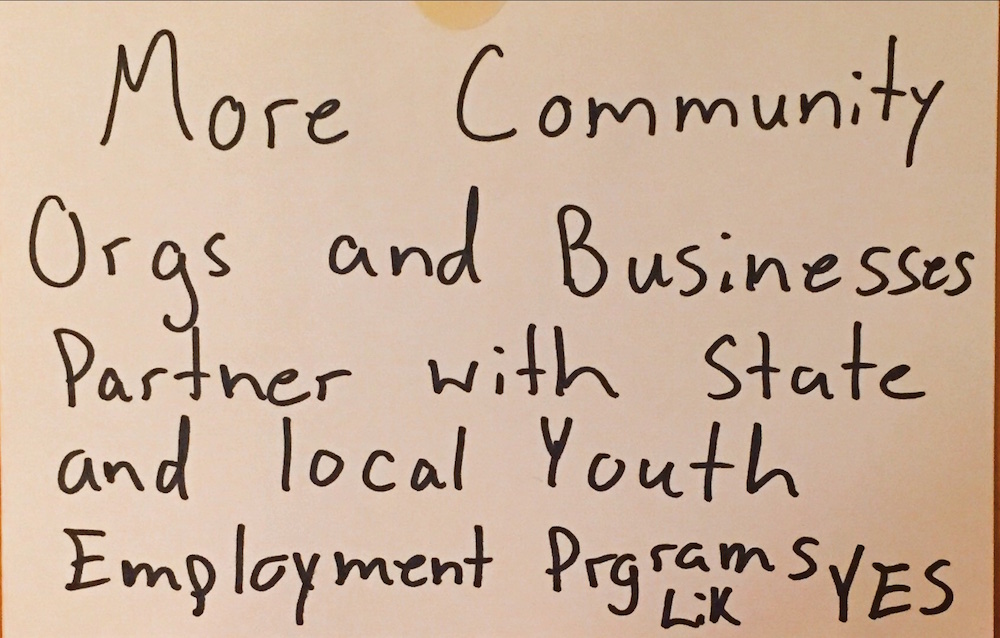 More Community
Orgs and Businesses
Partner with State
and local Youth
Employment Prgrams YES
LiK